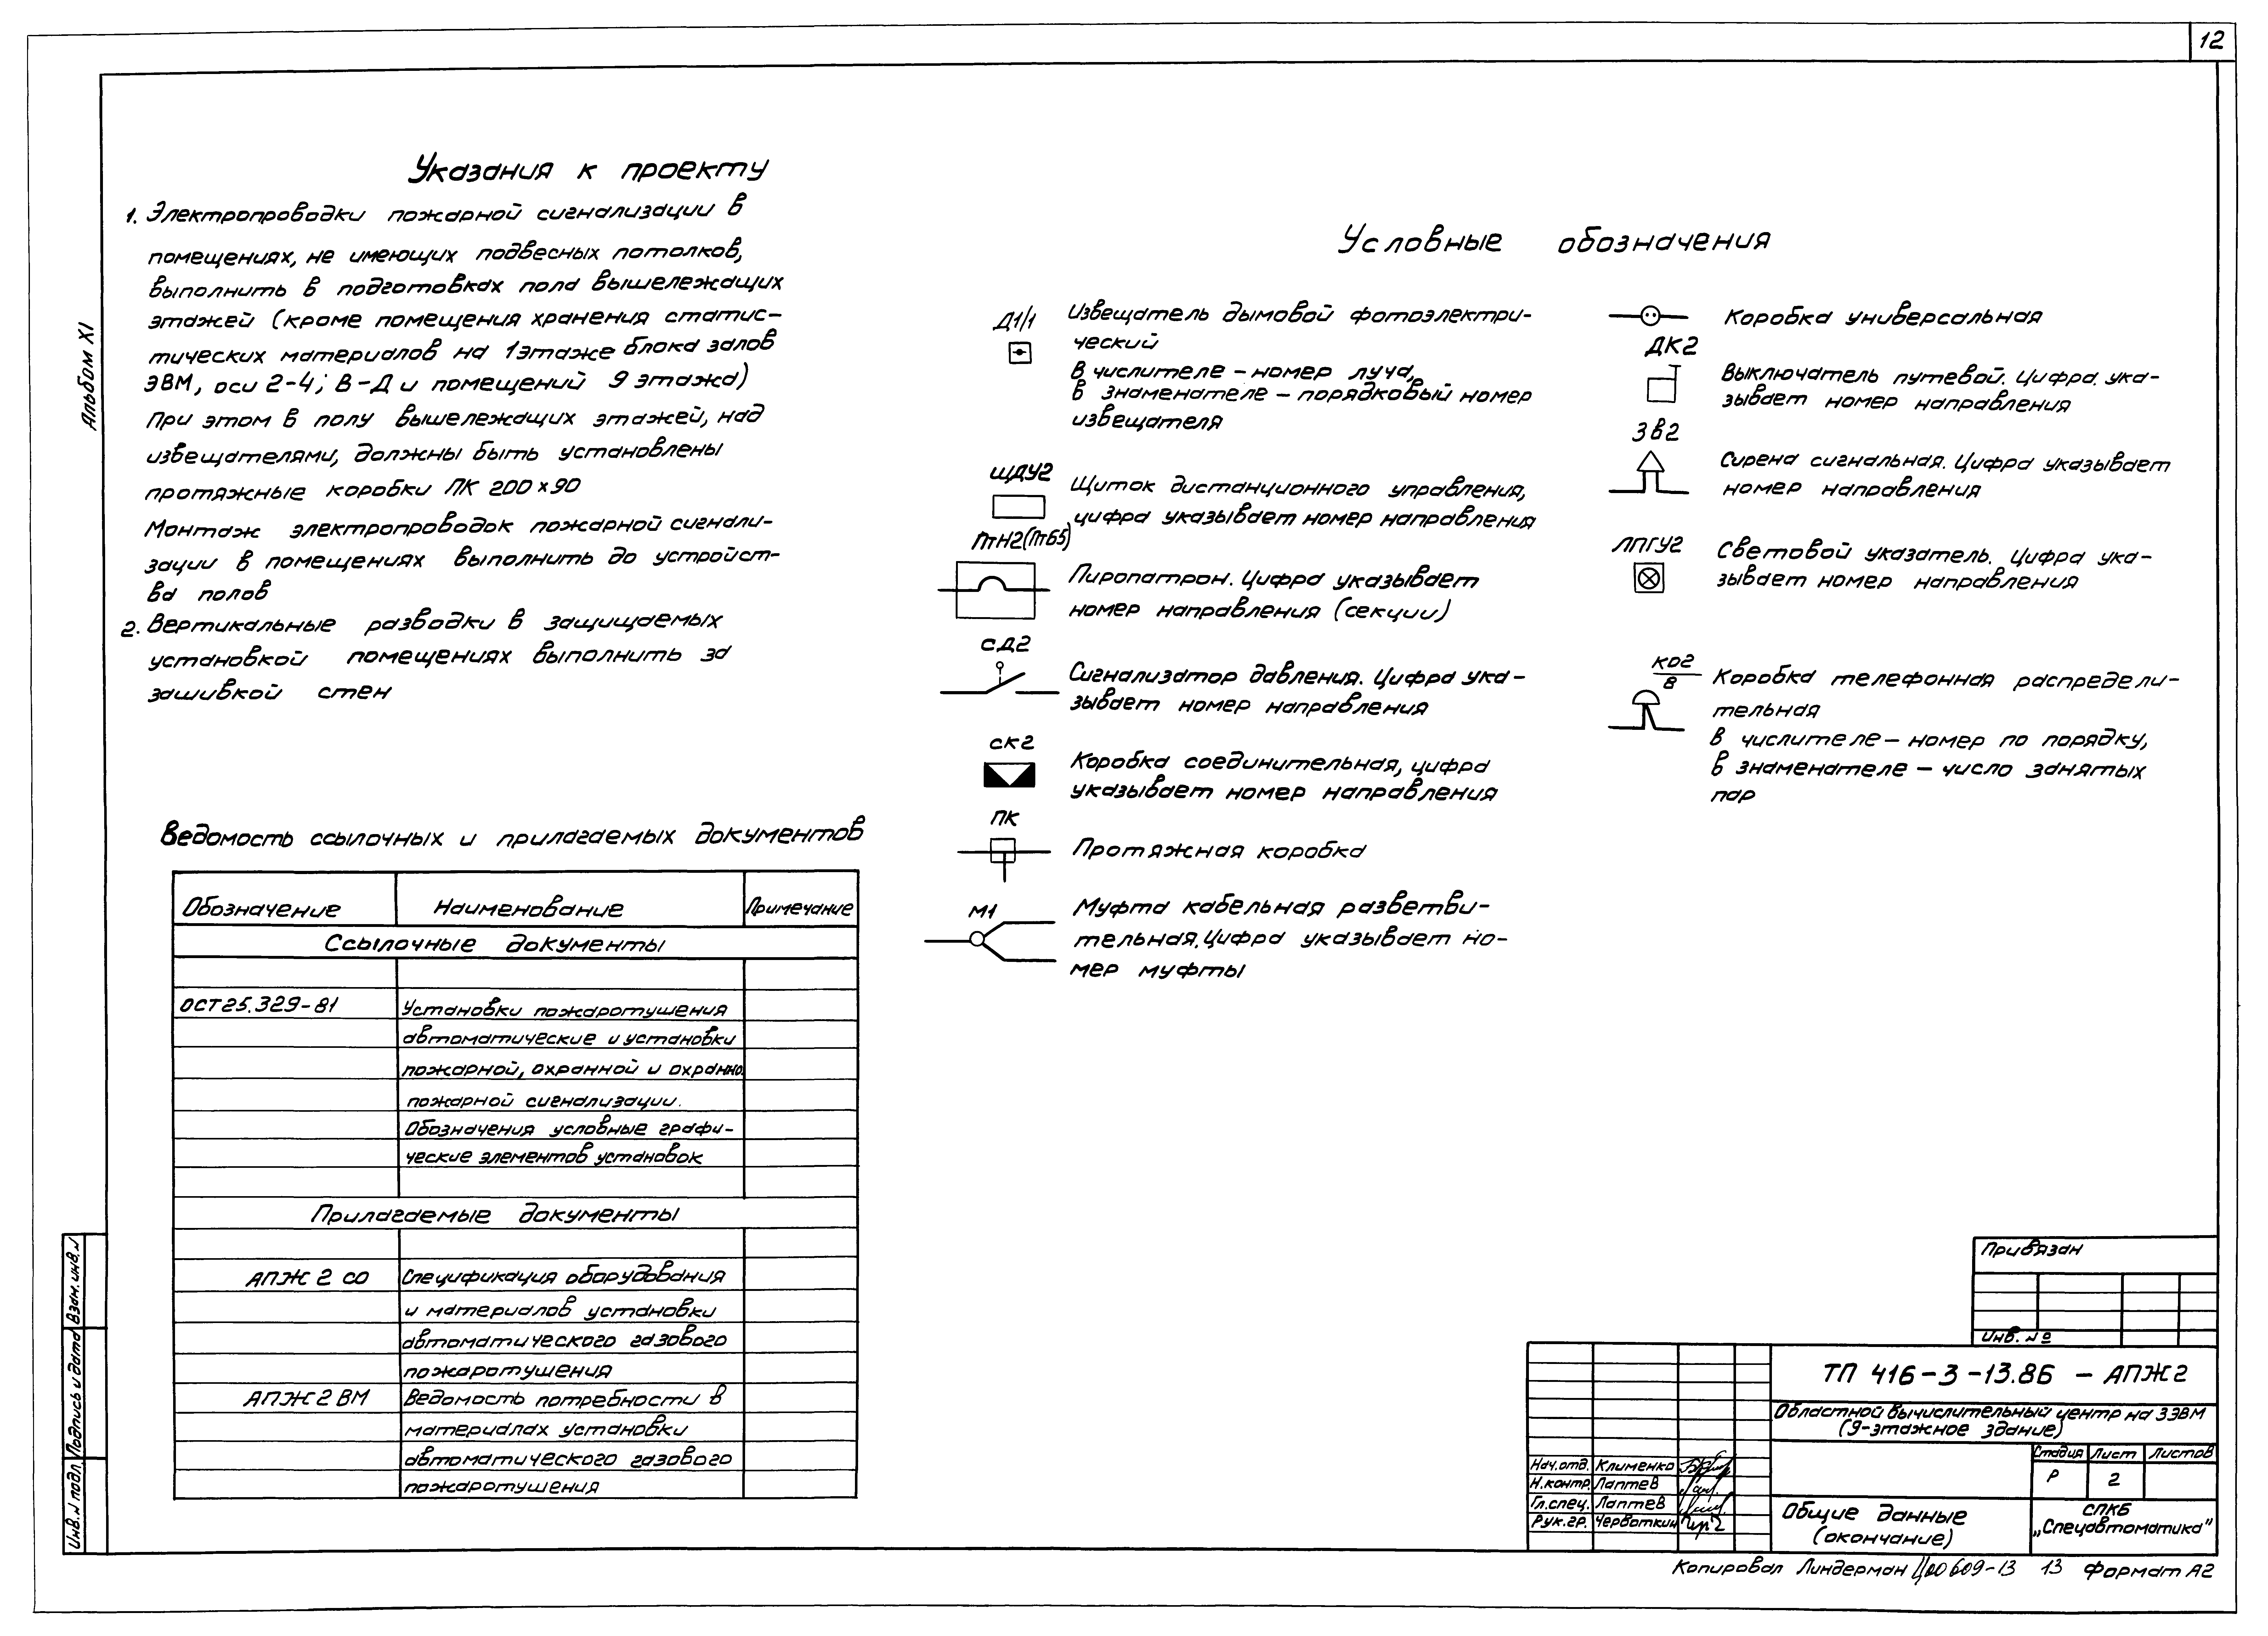 12
Альбом XI
Указания к проекту
1. Электропроводки пожарной сигнализации в
помещениях, не имеющих подвесных потолков,
выполнить в подготовках пола вышележащих
этажей (кроме помещения хранения статис-
тических материалов на 1 этаже блока залов
ЭВМ, оси 2-4; В-Д и помещений 9 этажа)
При этом в полу вышележащих этажей, над
извещателями, должны быть установлены
протяжные коробки ПК 200×90
Монтаж электропроводок пожарной сигнали-
зации в помещениях выполнить до устройст-
ва полов
2. Вертикальные разводки в защищаемых
установкой помещениях выполнить за
зашивкой стен
Ведомость ссылочных и прилагаемых документов
Обозначение Наименование Примечание
Ссылочные документы
ОСТ25.329-81 Установки пожаротушения
автоматические и установки
пожарной, охранной и охранно-
пожарной сигнализации.
Обозначения условные графи-
ческие элементов установок
Прилагаемые документы
АПЖ 2 СО Спецификация оборудования
и материалов установки
автоматического газового
пожаротушения
АПЖ 2 ВМ Ведомость потребности в
материалах установки
автоматического газового
пожаротушения
Условные обозначения
Д1/1 Извещатель дымовой фотоэлектри-
ческий
В числителе – номер луча,
в знаменателе – порядковый номер
извещателя
ЩДУ2
Щиток дистанционного управления,
цифра указывает номер направления
ПтН2(Пт65)
Пиропатрон. Цифра указывает
номер направления (секции)
СД2
Сигнализатор давления. Цифра ука-
зывает номер направления
СК2
Коробка соединительная, цифра
указывает номер направления
ПК
Протяжная коробка
М1
Муфта кабельная разветви-
тельная. Цифра указывает но-
мер муфты
Коробка универсальная
ДК2
Выключатель путевой. Цифра ука-
зывает номер направления
Зв2
Сирена сигнальная. Цифра указывает
номер направления
ЛПГУ2
Световой указатель. Цифра ука-
зывает номер направления
КО2/8
Коробка телефонная распредели-
тельная
В числителе – номер по порядку,
в знаменателе – число занятых
пар
Взам. инв. N
Подпись и дата
Инв. N подл.
Привязан
Инв. №
ТП 416-3-13.86 – АПЖ2
Областной вычислительный центр на 3 ЭВМ
(9-этажное здание)
Стадия Лист Листов
Р 2
Нач. отд. Клименко
Н.контр. Лаптев
Гл.спец. Лаптев
Рук.гр. Червоткин
Общие данные
(окончание)
СПКБ
„Спецавтоматика"
Копировал Линдерман Ц00609-13 13 Формат А2